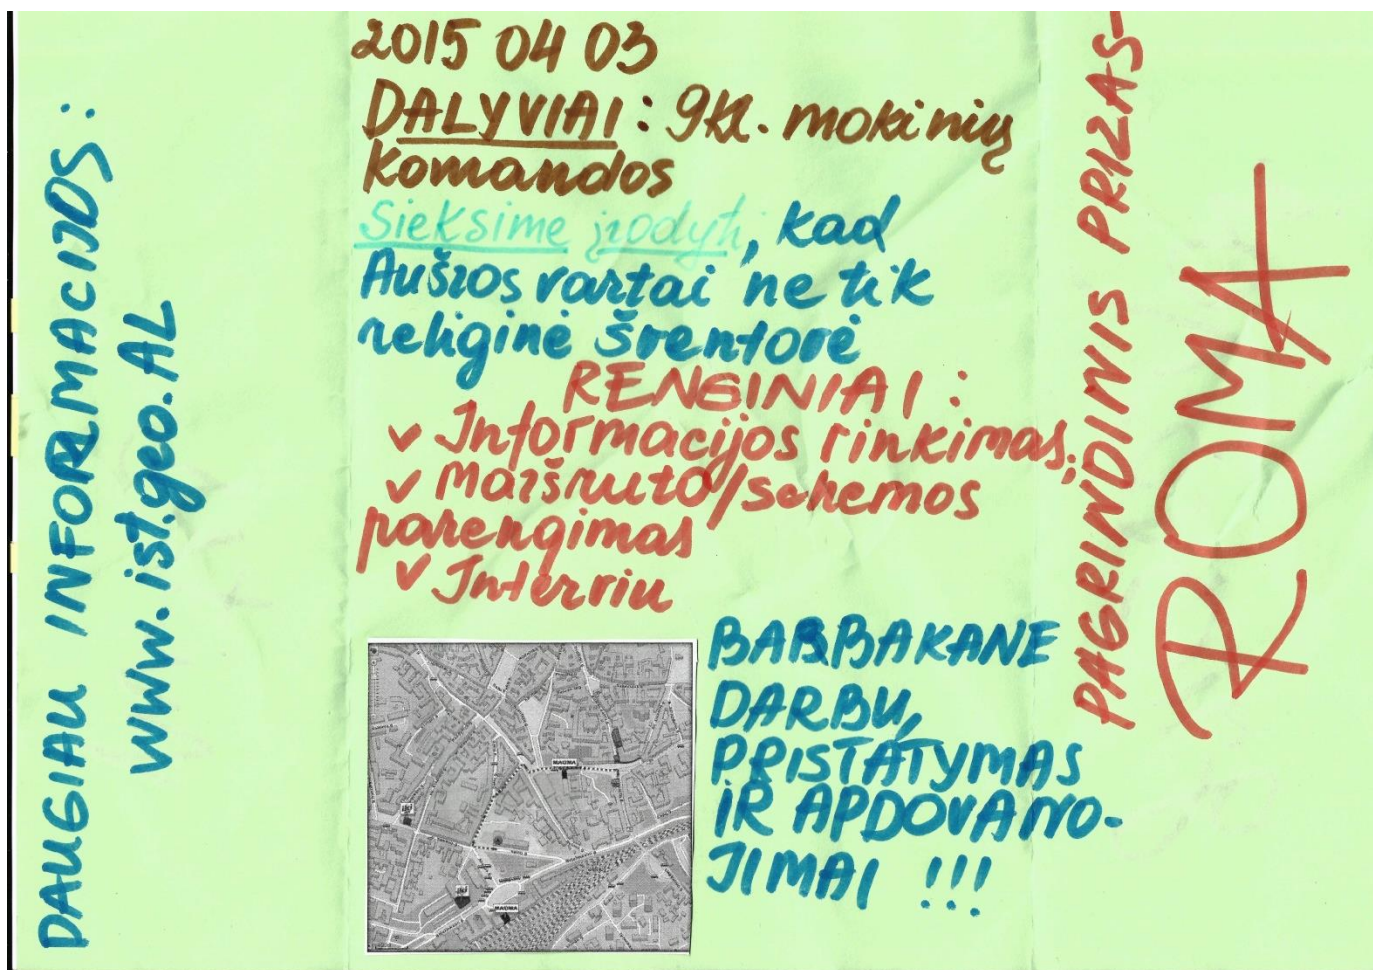 DAUGIAU INFORMACIJOS:
www.ist.geo.AL
2015 04 03
DALYVIAI: 9kl. mokinių
komandos
Sieksime įrodyti, kad
Aušros vartai ne tik
religinė šventovė
RENGINIAI:
v Informacijos rinkimas,
v Maršruto/schemos
parengimas
v Interviu
BARBAKANE
DARBŲ
PRISTATYMAS
IR APDOVANO-
JIMAI !!!
PAGRINDINIS PRIZAS-
ROMA
MAGMA
MAGMA